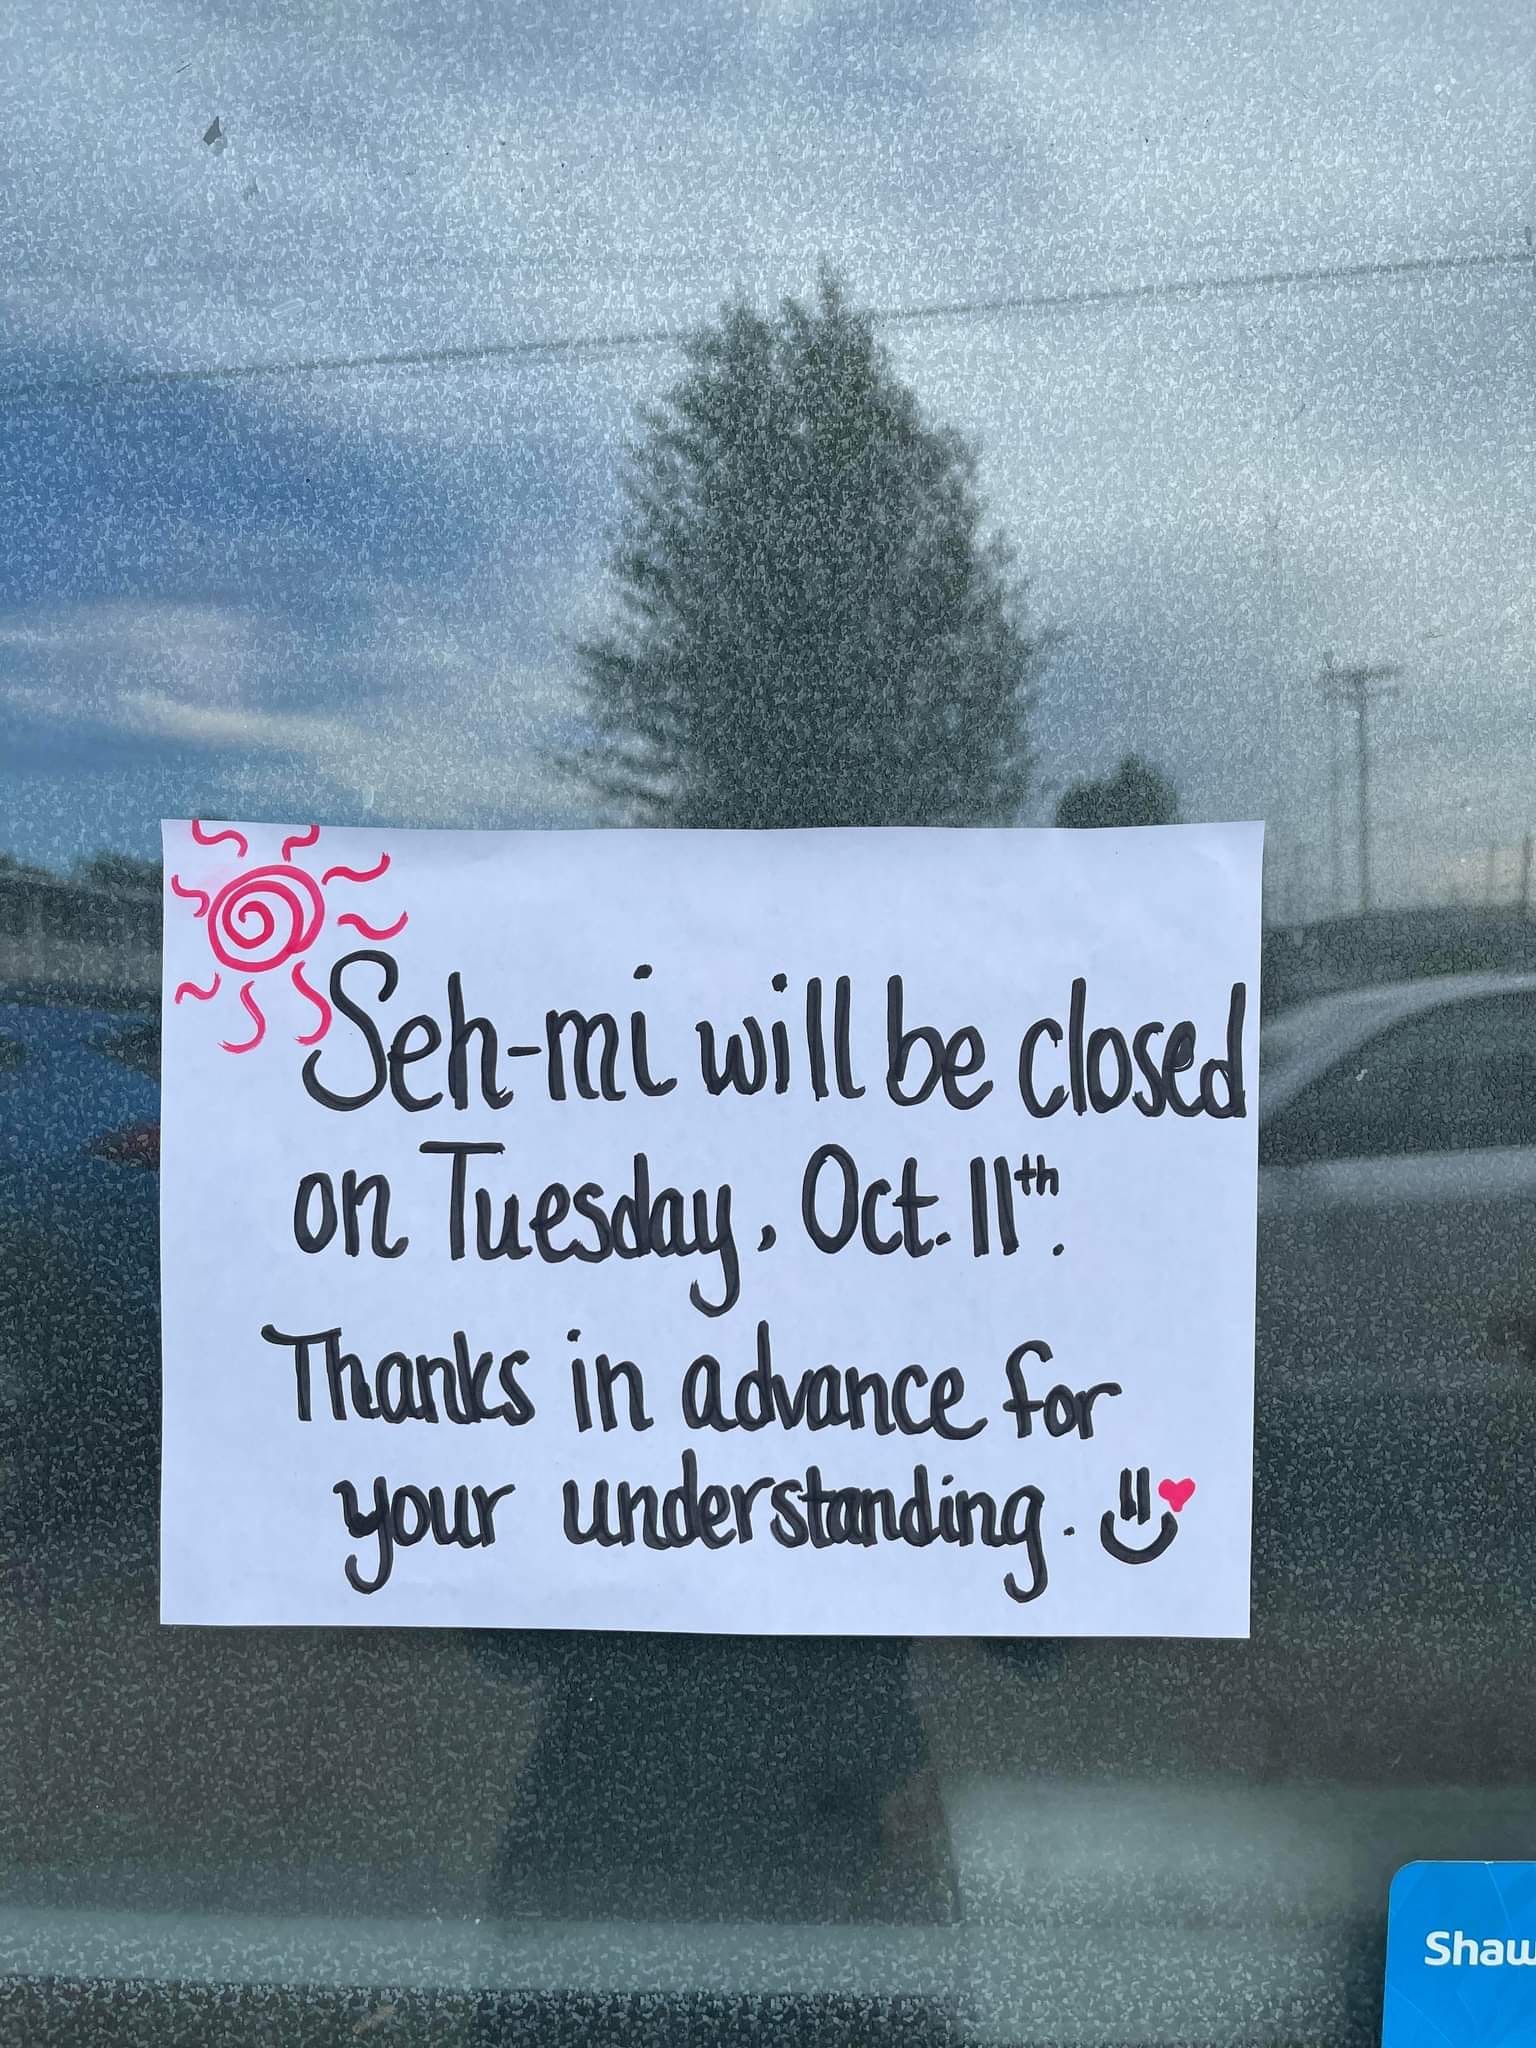 Seh-mi will be closed
on Tuesday, Oct. 11th.
Thanks in advance for
your understanding.
Shaw